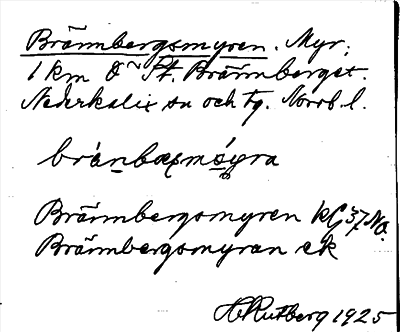 Brännbergsmyren. Myr,
1 km Ö St. Brännberget.
Nederkalix sn och tg. Norrb. l.
Brännbergsmyren kG 37 Nø.
Brännbergsmyran ek
H Rutberg 1925